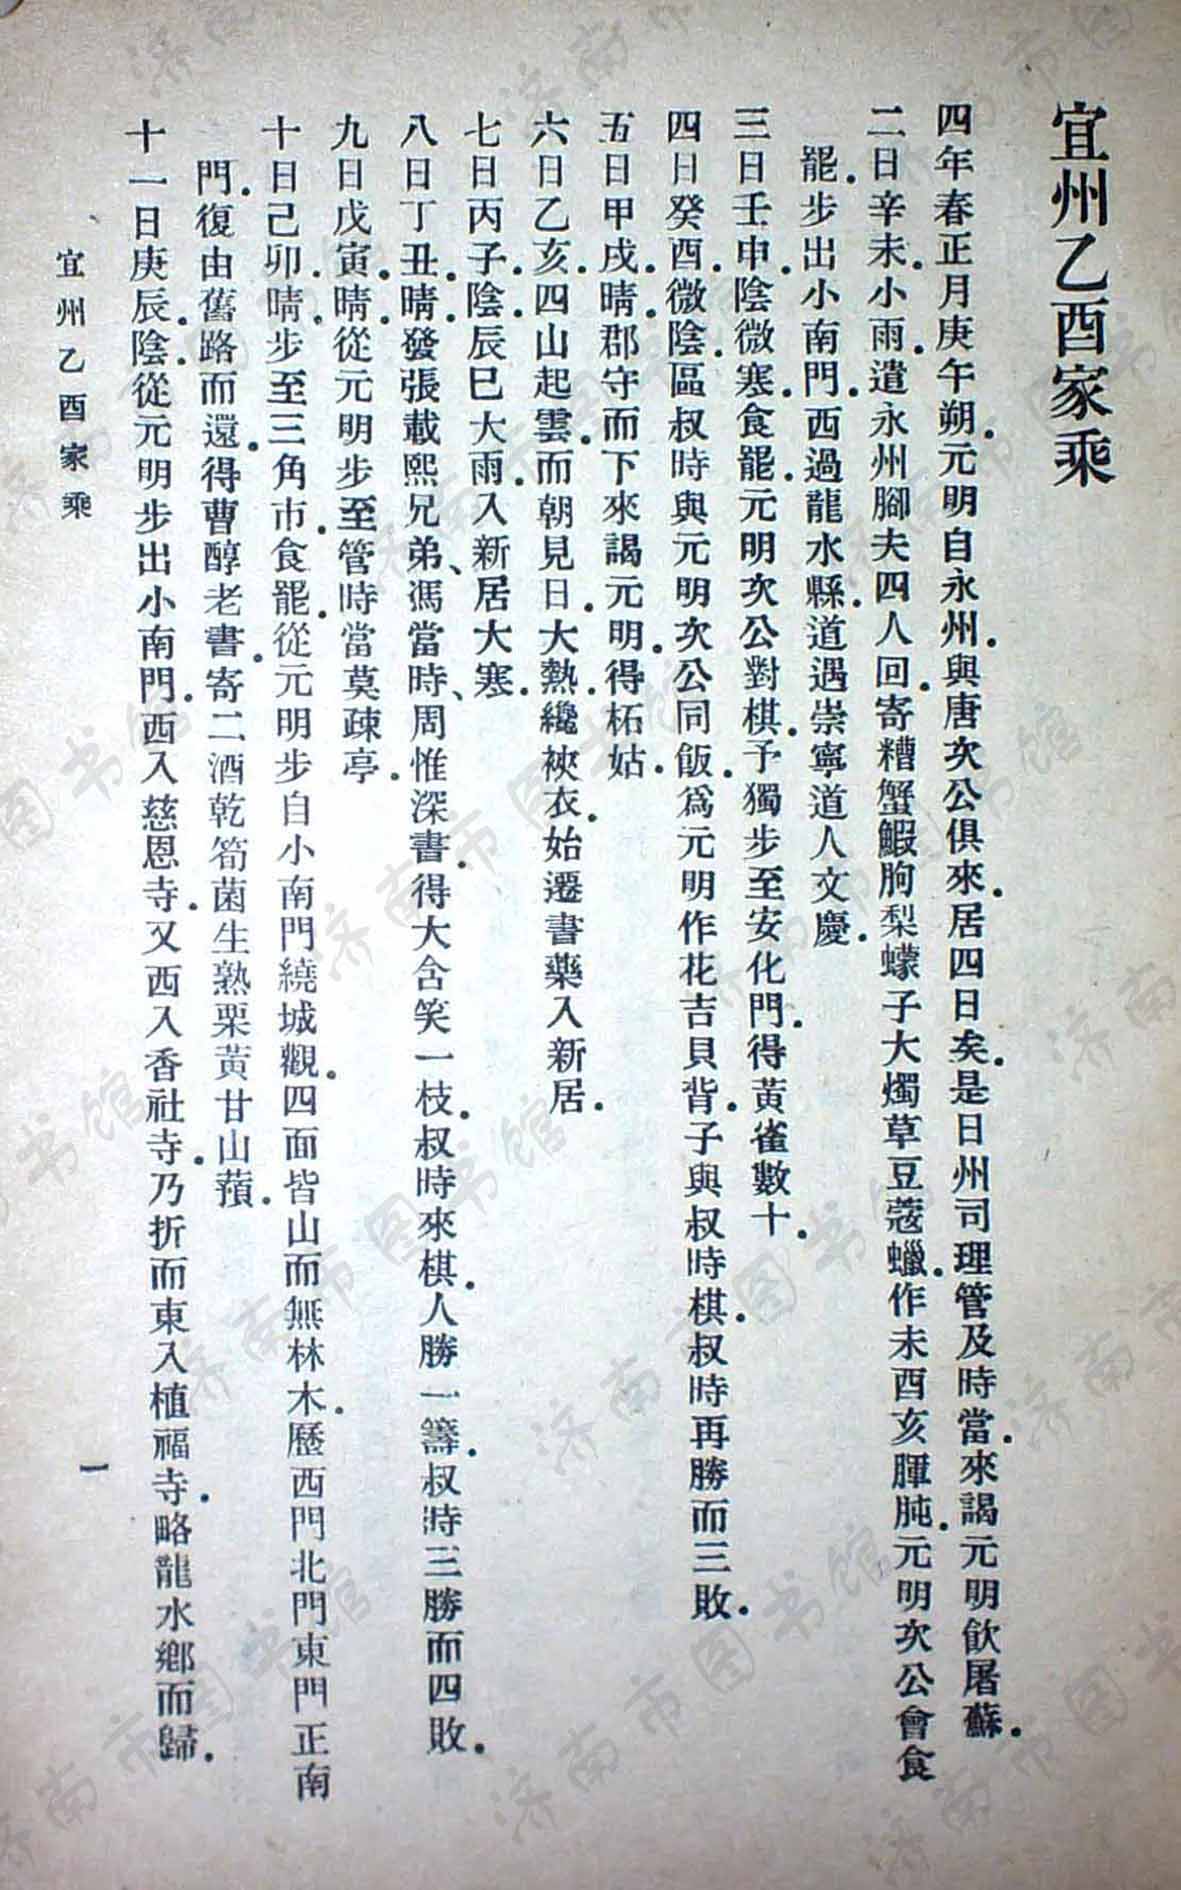 宜州乙酉家乘
四年春正月庚午朔.元明自永州.與唐次公俱來.居四日矣.是日州司理管及時當.來謁元明飲屠蘇.
二日辛未.小雨.遣永州腳夫四人回.寄糟蟹鰕朐梨蠓子大燭草豆蔻蠟.作未酉亥腪肫.元明次公會食
罷.步出小南門.西過龍水縣.道遇崇寧道人文慶.
三日壬申.陰微寒.食罷.元明次公對棋.予獨步至安化門.得黃雀數十.
四日癸酉.微陰.區叔時與元明次公同飯.爲元明作花吉貝背.子與叔時棋.叔時再勝而三敗.
五日甲戌.晴.郡守而下來謁元明.得柘姑.
六日乙亥.四山起雲.而朝見日.大熱.纔裌衣.始遷書藥入新居.
七日丙子.陰.辰巳大雨.入新居大寒.
八日丁丑.晴.發張載熙兄弟、馮當時、周惟深書.得大含笑一枝.叔時來棋.人勝一籌.叔時三勝而四敗.
九日戊寅.晴.從元明步至管時當莫疎亭.
十日己卯.晴.步至三角市.食罷.從元明步自小南門繞城觀.四面皆山而無林木.歷西門北門東門正南
門.復由舊路而還.得曹醇老書.寄二酒乾筍菌生熟栗黃甘山蕷.
十一日庚辰.陰.從元明步出小南門.西入慈恩寺.又西入香社寺.乃折而東入植福寺.略龍水鄉而歸.
宜州乙酉家乘
一
济南市图书馆